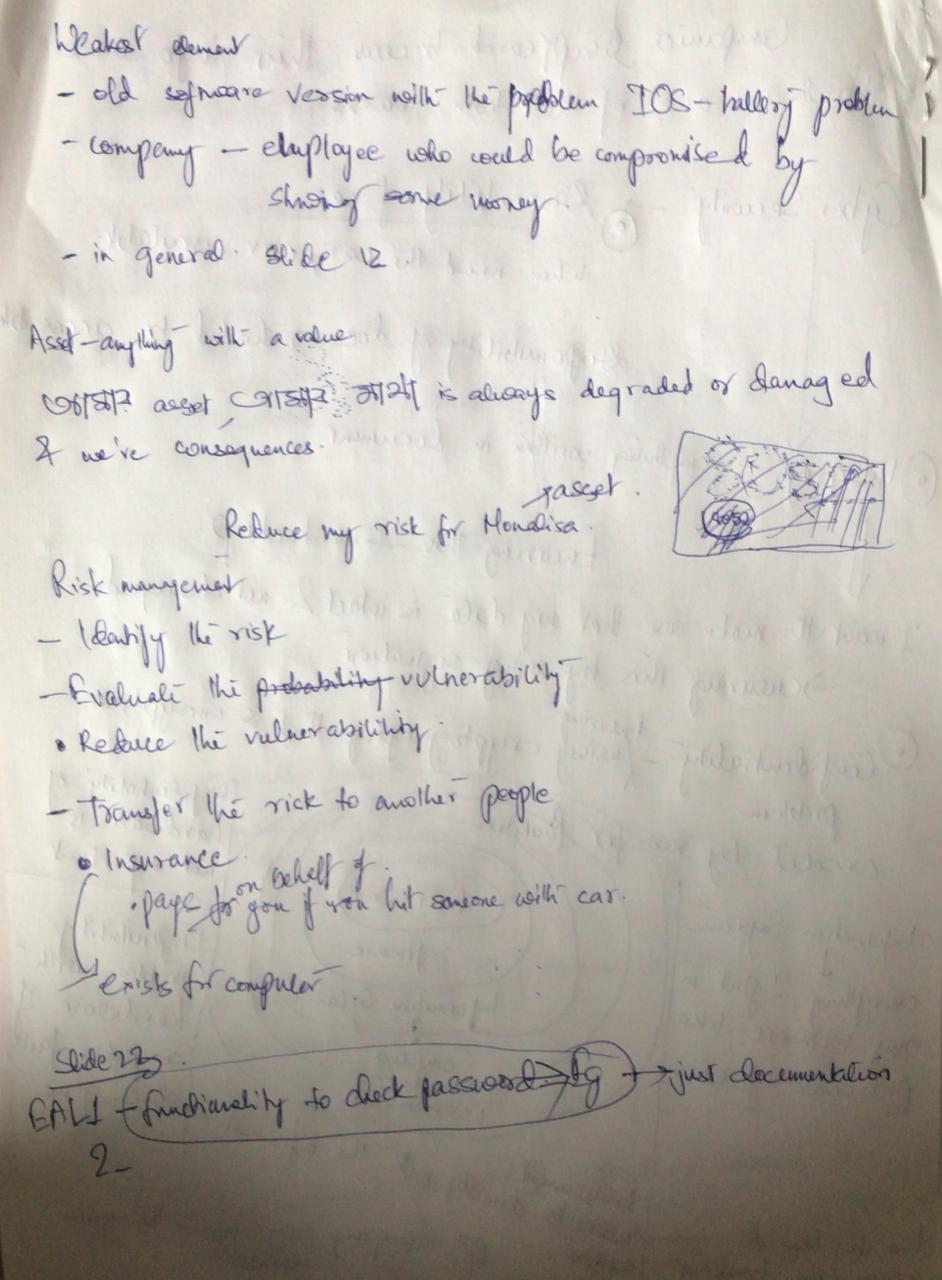 Weakest element
- old software version with the problem IOS - battery problem
- company - employee who could be compromised by
showing some money.
- in general. Slide 12
Asset - anything with a value
আমার asset, আমার মাথা is always degraded or damaged
& we're consequences.
asset.
Reduce my risk for Monalisa.
Risk management
- Identify the risk
- Evaluate the probability vulnerability
• Reduce the vulnerabilility.
- Transfer the rick to another people
• Insurance.
on behalf of.
• pays for you if you hit someone with car.
exists for computer
Slide 23.
EAL1 - functionality to check password → just documentation
2 -